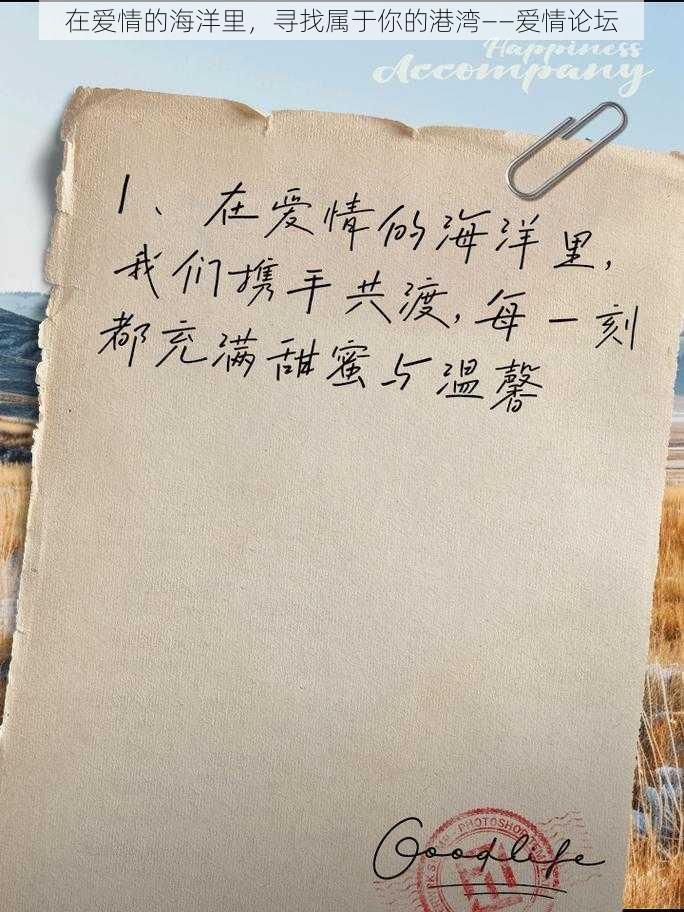 在爱情的海洋里，寻找属于你的港湾——爱情论坛
Happiness
Accompany
1、在爱情的海洋里，
我们携手共渡，每一刻
都充满甜蜜与温馨
PHOTOSHOP
Goodlife